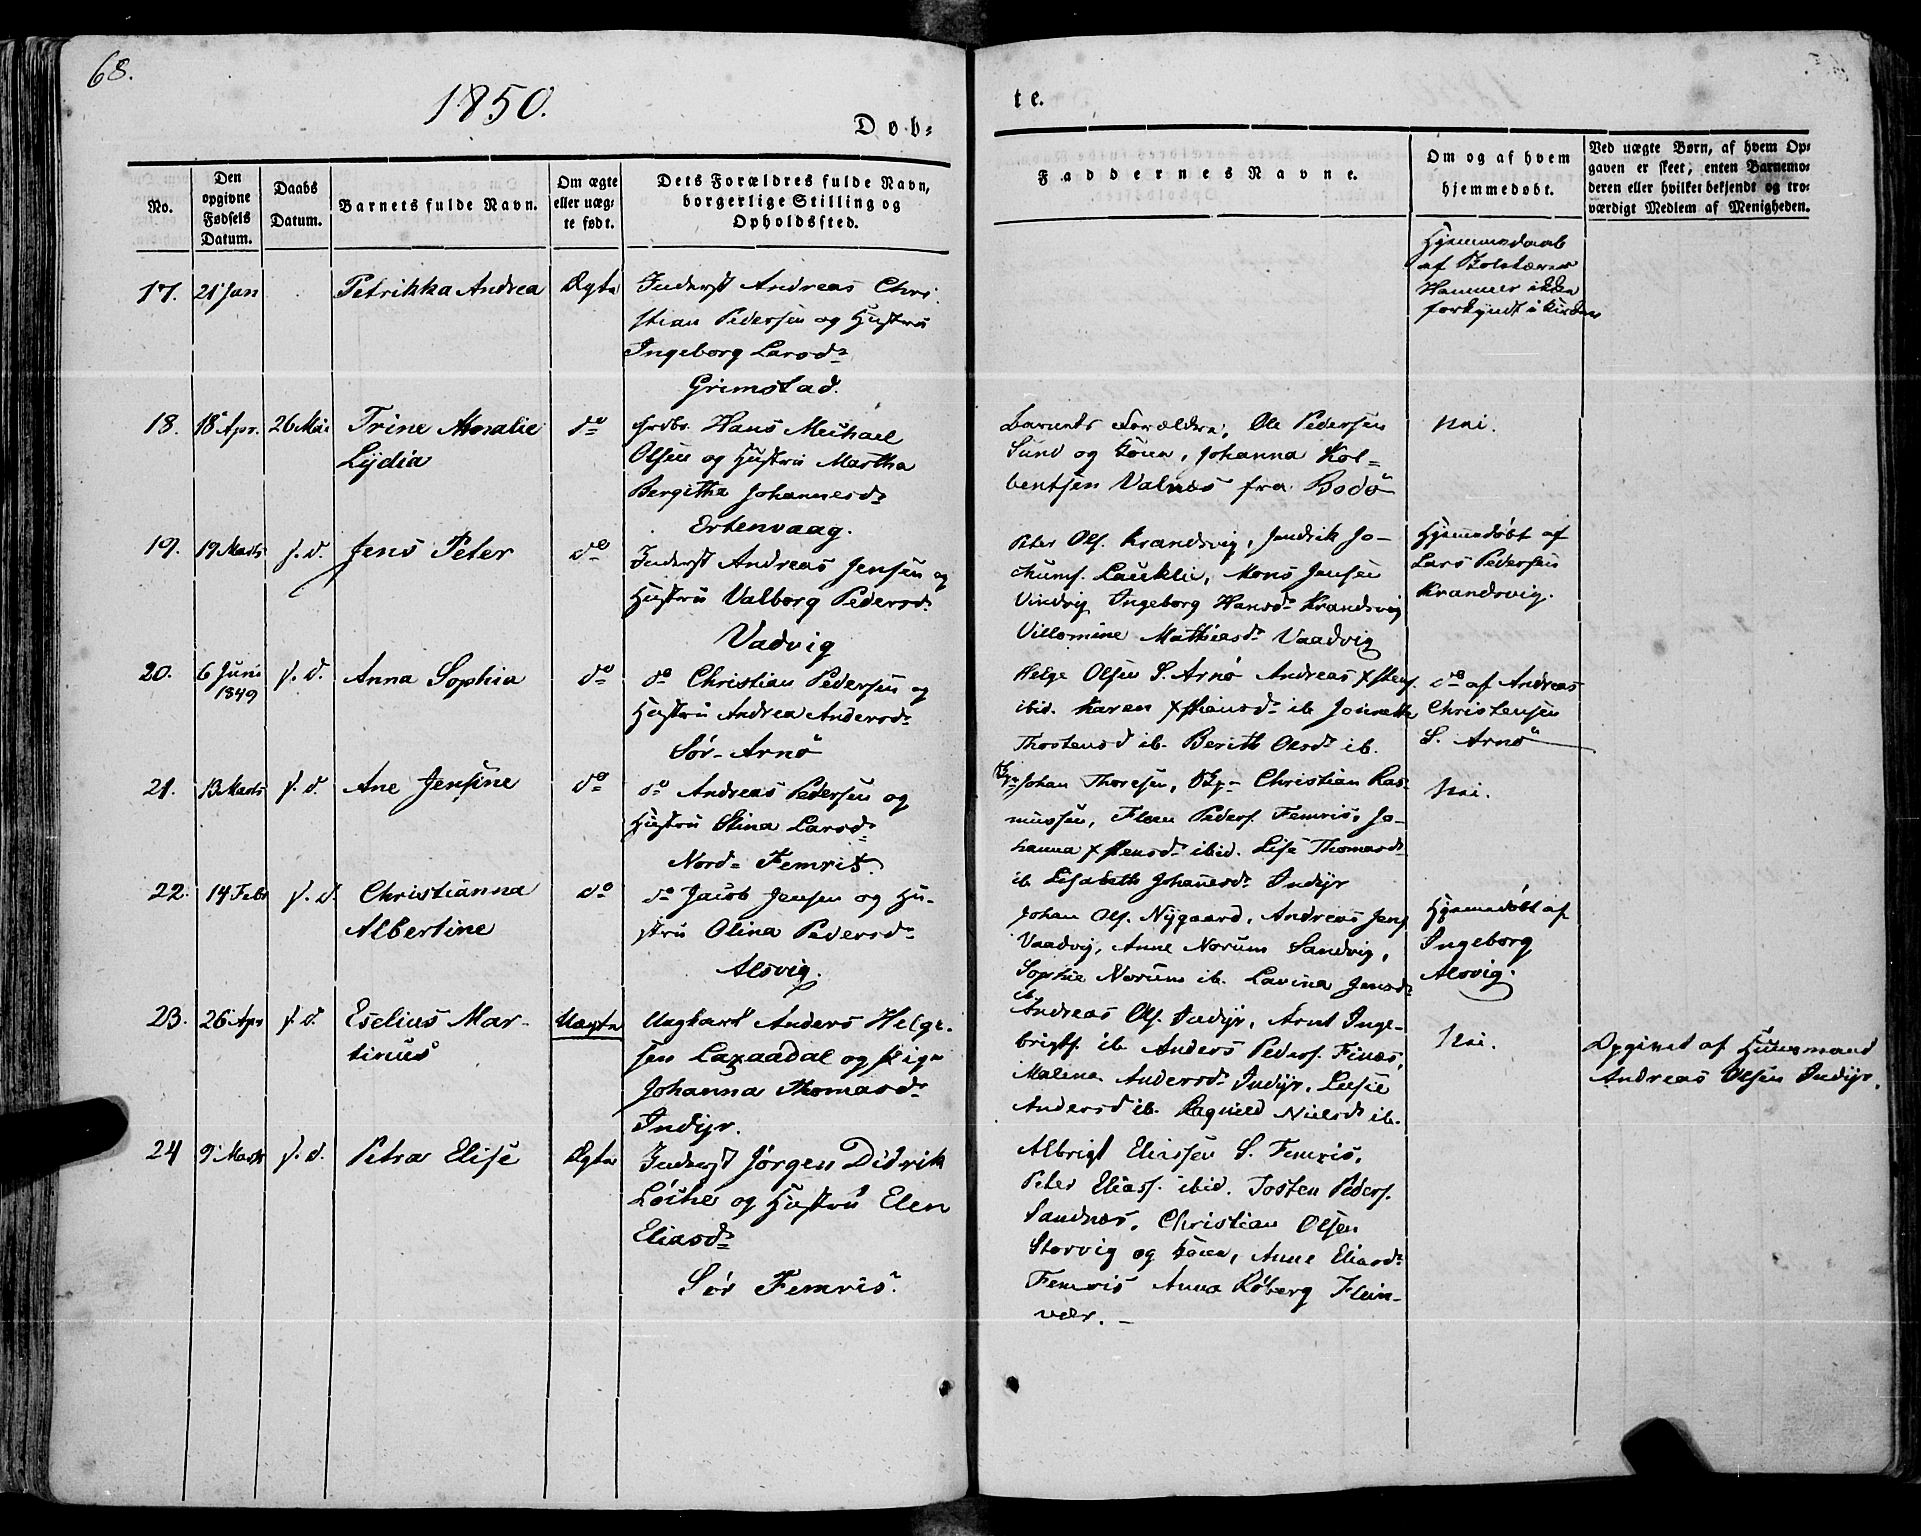 68.
1850.
Døb-
te.
No.
Den opgivne Fødsels Datum.
Daabs Datum.
Barnets fulde Navn.
Om ægte eller uæg- te født.
Dets Forældres fulde Navn, borgerlige Stilling og Opholdssted.
Faddernes Navne.
Om og af hvem hjemmedøbt.
Ved uægte Børn, af hvem Op- gaven er skeet, enten Barnemo- deren eller hvilket bekjendt og tro- værdigt Medlem af Menigheden.
17. 21 Jan Petrikka Andrea Ægte
Inderst Andreas Chri-
stian Pedersen og Hustru
Ingeborg Larsd:
Grimstad.
Hjemmedaab
af
Hammer ikke
forkyndt i Kirken
18. 18 Apr. 26 Mai Trine Amalie
Lydia
do
Grdbr. Hans Michael
Olsen og Hustru Martha
Bergitha Johannesd:
Ertenvaag.
Barnets Forældre, Ole Pedersen
Sund og Kone, Johanna Kol-
bentsen Valnæs fra Bodø
Nei.
19. 19 Marts s. d. Jens Peter do
Inderst Andreas Jensen og
Hustru Valborg Pedersd:
Vadvig
Peter Ols. Krandsvig, Hendrik Jo-
chums. Lauklie, Mons Jensen
Vindvig Ingeborg Hansd: Krandsvig
Villomine Mathiasd: Vaadvig
Hjemmedøbt af
Lars Pedersen
Krandsvig.
20. 6 Juni
1849
s. d. Anna Sophia do
do Christian Pedersen og
Hustru Andrea Andersd:
Sør-Arnø
Helge Olsen S. Arnø Andreas Xstens.
ibid. Karen Xstiansd: ib Jonette
Thostensd ib. Berith Olsd: ib.
do af Andreas
Christensen
S. Arnø
21. 13 Marts s. d. Ane Jensine do
do Andreas Pedersen og
Hustru Stina Larsd:
Nord-Femris.
Johan Thoresen, Christian Ras-
mussen, Peders. Femris, Jo-
hanna Xstensd: ibid. Lise Thomasd:
ib Lisabeth Johanesd: Indyr
Nei.
22. 14 Febr s. d. Christianna
Albertine
do
do Jacob Jensen og Hu-
stru Olina Pedersd:
Alsvig.
Johan Ols. Nygaard, Andreas Jens.
Vaadvig, Anne Norum Sandvig,
Sophie Norum ib. Lavina Jensd:
ib.
Hjemmedøbt af
Ingeborg
Alsvig.
23. 26 Apr s. d. Eselius Mar-
tinus
Uægte
Ungkarl Anders Helge-
sen Laxaadal og Pige
Johanna Thomasd:
Indyr.
Andreas Ols. Indyr, Arnt Inge-
brigts. ib Anders Peders. Finæs,
Malina Andersd: Indyr, Lusie
Andersd ib. Ragnild Nielsd: ib.
Nei.
Opgivet af Huusmand
Andreas Olsen Indyr.
24 9 Marts s. d. Petra Elise Ægte
Inderst Jørgen Didrik
Løche og Hustru Elen
Eliasd:
Sør Femris.
Albrigt Eliassen S. Femris,
Peter Eliass. ibid. Josten Peders.
Sandnæs, Christian Olsen
Storvig og Kone, Anne Eliasd:
Femris Anna Røberg Flein-
vær. –